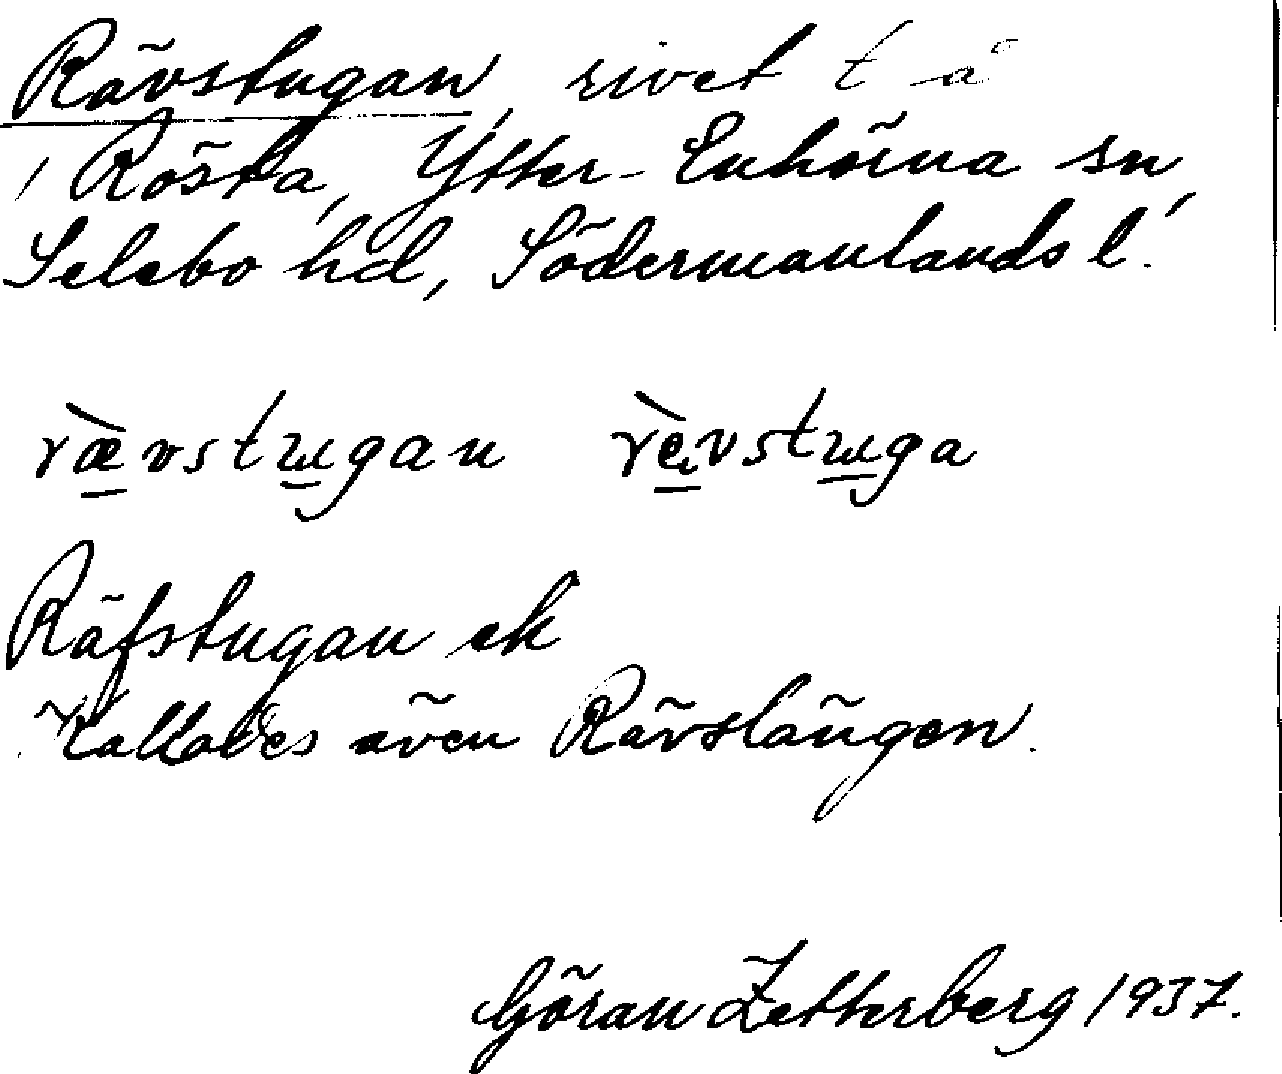 Rävstugan, rivet t å
i Rösta, Ytter-Enhörna sn,
Selebo hd, Södermanlands l.
rævstɯgan rèvstɯga
Räfstugan ek
Kallades även Rävslängen.
Göran Zetterberg 1937.